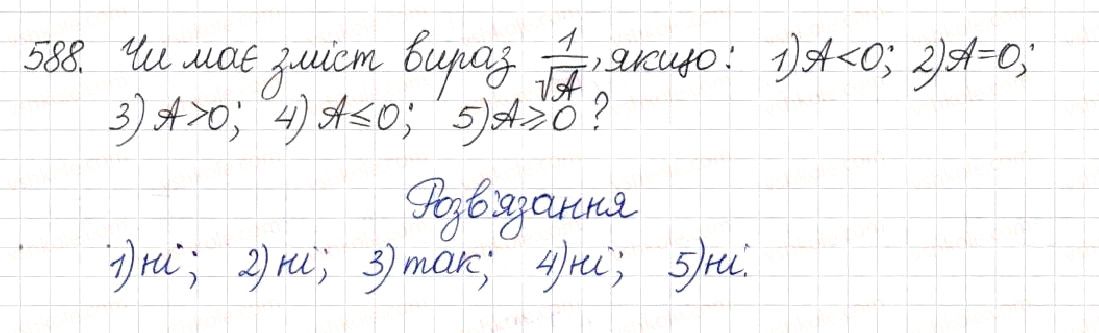 588. Чи має зміст вираз 1/√A, якщо: 1) A<0; 2) A=0;
3) A>0; 4) A≤0; 5) A≥0?
Розв'язання
1) ні; 2) ні; 3) так; 4) ні; 5) ні.